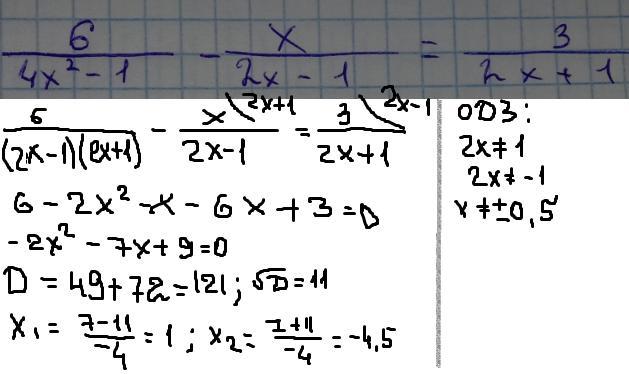 6/(4x² - 1) - x/(2x - 1) = 3/(2x + 1)
6/((2x-1)(2x+1)) - x\2x+1/(2x-1) = 3\2x-1/(2x+1)
6 - 2x² - x - 6x + 3 = 0
-2x² - 7x + 9 = 0
D = 49 + 72 = 121; √D = 11
x₁ = (7-11)/-4 = 1; x₂ = (7+11)/-4 = -4,5
ОДЗ:
2x ≠ 1
2x ≠ -1
x ≠ ±0,5